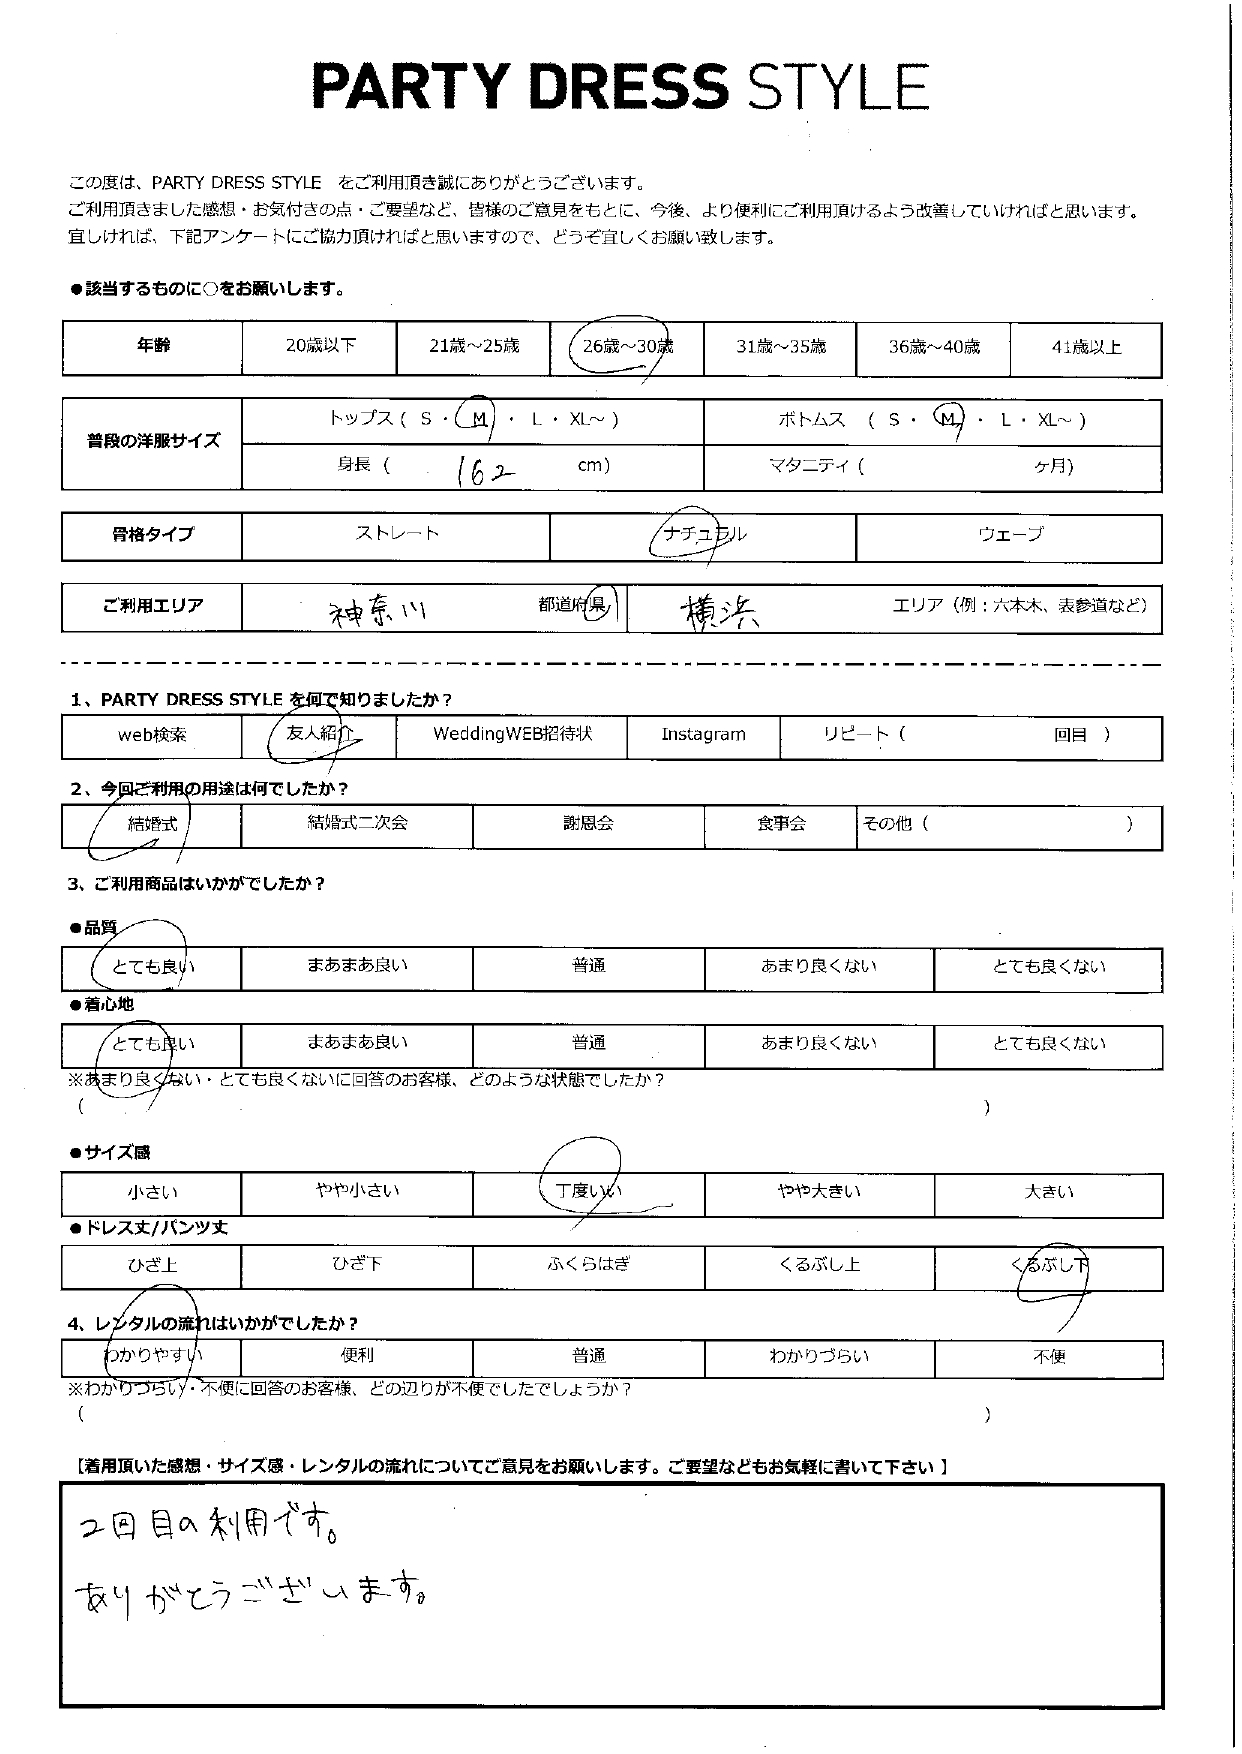 PARTY DRESS STYLE
この度は、PARTY DRESS STYLE をご利用頂き誠にありがとうございます。
ご利用頂きました感想・お気付きの点・ご要望など、皆様のご意見をもとに、今後、より便利にご利用頂けるよう改善していければと思います。
宜しければ、下記アンケートにご協力頂ければと思いますので、どうぞ宜しくお願い致します。
●該当するものに○をお願いします。
年齢 20歳以下 21歳～25歳 26歳～30歳 31歳～35歳 36歳～40歳 41歳以上
普段の洋服サイズ トップス ( S ・ M ・ L ・ XL～ ) ボトムス ( S ・ M ・ L ・ XL～ )
身長 ( 162 cm) マタニティ ( ヶ月)
骨格タイプ ストレート ナチュラル ウェーブ
ご利用エリア 神奈川 都道府県 横浜 エリア（例：六本木、表参道など）
1、PARTY DRESS STYLE を何で知りましたか？
web検索 友人紹介 WeddingWEB招待状 Instagram リピート ( 回目 )
2、今回ご利用の用途は何でしたか？
結婚式 結婚式二次会 謝恩会 食事会 その他 ( )
3、ご利用商品はいかがでしたか？
●品質
とても良い まあまあ良い 普通 あまり良くない とても良くない
●着心地
とても良い まあまあ良い 普通 あまり良くない とても良くない
※あまり良くない・とても良くないに回答のお客様、どのような状態でしたか？
( )
●サイズ感
小さい やや小さい 丁度いい やや大きい 大きい
●ドレス丈/パンツ丈
ひざ上 ひざ下 ふくらはぎ くるぶし上 くるぶし下
4、レンタルの流れはいかがでしたか？
わかりやすい 便利 普通 わかりづらい 不便
※わかりづらい・不便に回答のお客様、どの辺りが不便でしたでしょうか？
( )
【着用頂いた感想・サイズ感・レンタルの流れについてご意見をお願いします。ご要望などもお気軽に書いて下さい】
2回目の利用です。
ありがとうございます。